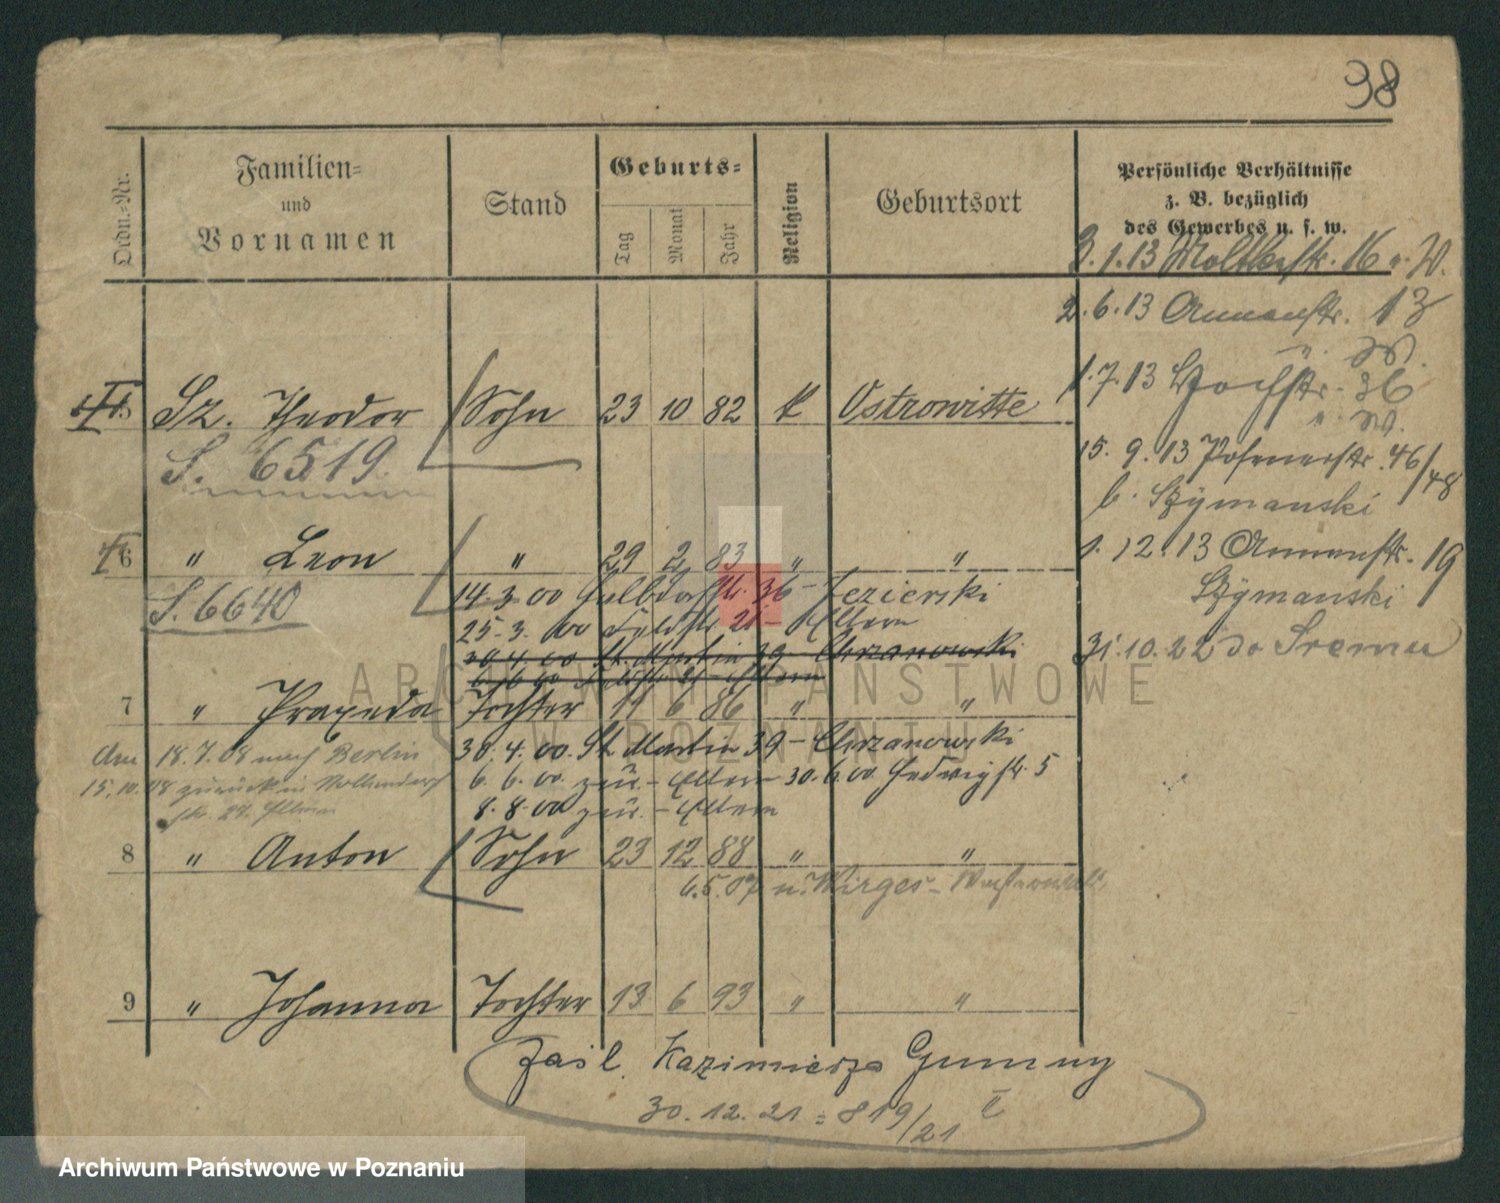 38
Ordn.-Nr.
Familien-
und
Vornamen
Stand
Geburts-
Tag
Monat
Jahr
Religion
Geburtsort
Persönliche Verhältnisse
z. B. bezüglich
des Gewerbes u. s. w.
3.1.13 Moltkestr. 16 v. W.
2.6.13 Annenstr. 13
v. W.
1.7.13 36
v. W.
15.9.13 Posenerstr. 46/48
b. Szymanski
1.12.13 Annenstr. 19
Szymanski
31.10.22 do Śremu
5 Sz. Theodor Sohn 23 10 82 k Ostrowitte
S. 6519
6 " Leon " 29 2 83 " "
S. 6640
14.3.00 36 - Jezierski
25.3.00 Feldstr. 21 - Eltern
30.4.00 St. Martin 39 - Chrzanowski
7 " Praxeda Tochter 11 6 86 " "
30.4.00. St. Martin 39 - Chrzanowski
6.6.00 zur. - Eltern 30.6.00 Hedwigstr. 5
8.8.00 zur. - Eltern
den 18.7.08 nach Berlin
15.10.08 zurück in Nollendorf
str. 27. Eltern
8 " Anton Sohn 23 12 88 " "
6.5.07 n. Wirges - Westerwald
9 " Johanna Tochter 13 6 93 " "
Zaśl. Kazimierza Gumny
30.12.21 = 819/21
ARCHIWUM PAŃSTWOWE
W POZNANIU
Archiwum Państwowe w Poznaniu